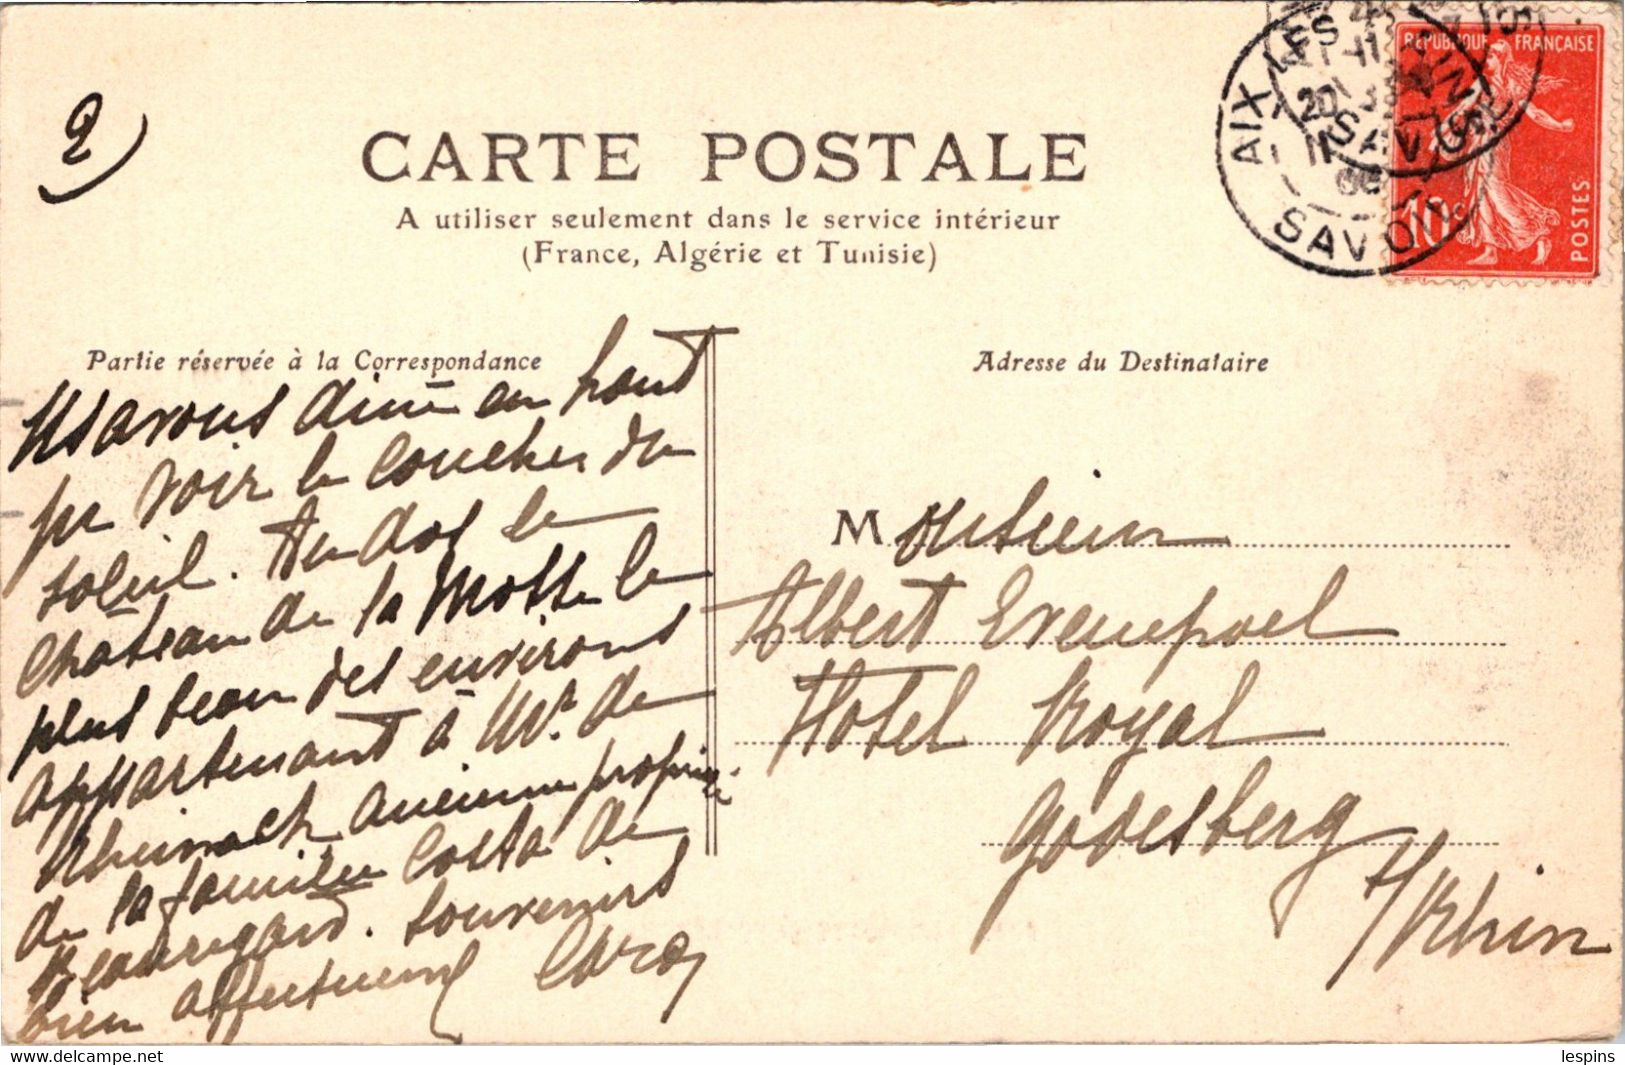 2)
CARTE POSTALE
A utiliser seulement dans le service intérieur
(France, Algérie et Tunisie)
RÉPUBLIQUE FRANÇAISE
10c
POSTES
AIX LES BAINS
SAVOIE
Partie réservée à la Correspondance
Ns avons diné en haut
pr voir le coucher du
soleil. Au dos le
château de la Motte le
plus beau des environs
appartenant à Mr. de
ancienne propri-
de la famille Costa de
Beauregard. Souvenirs
bien affectueux
Adresse du Destinataire
Monsieur
Albert Evenepoel
Hotel Royal
Godesberg
s/Rhin
lespins